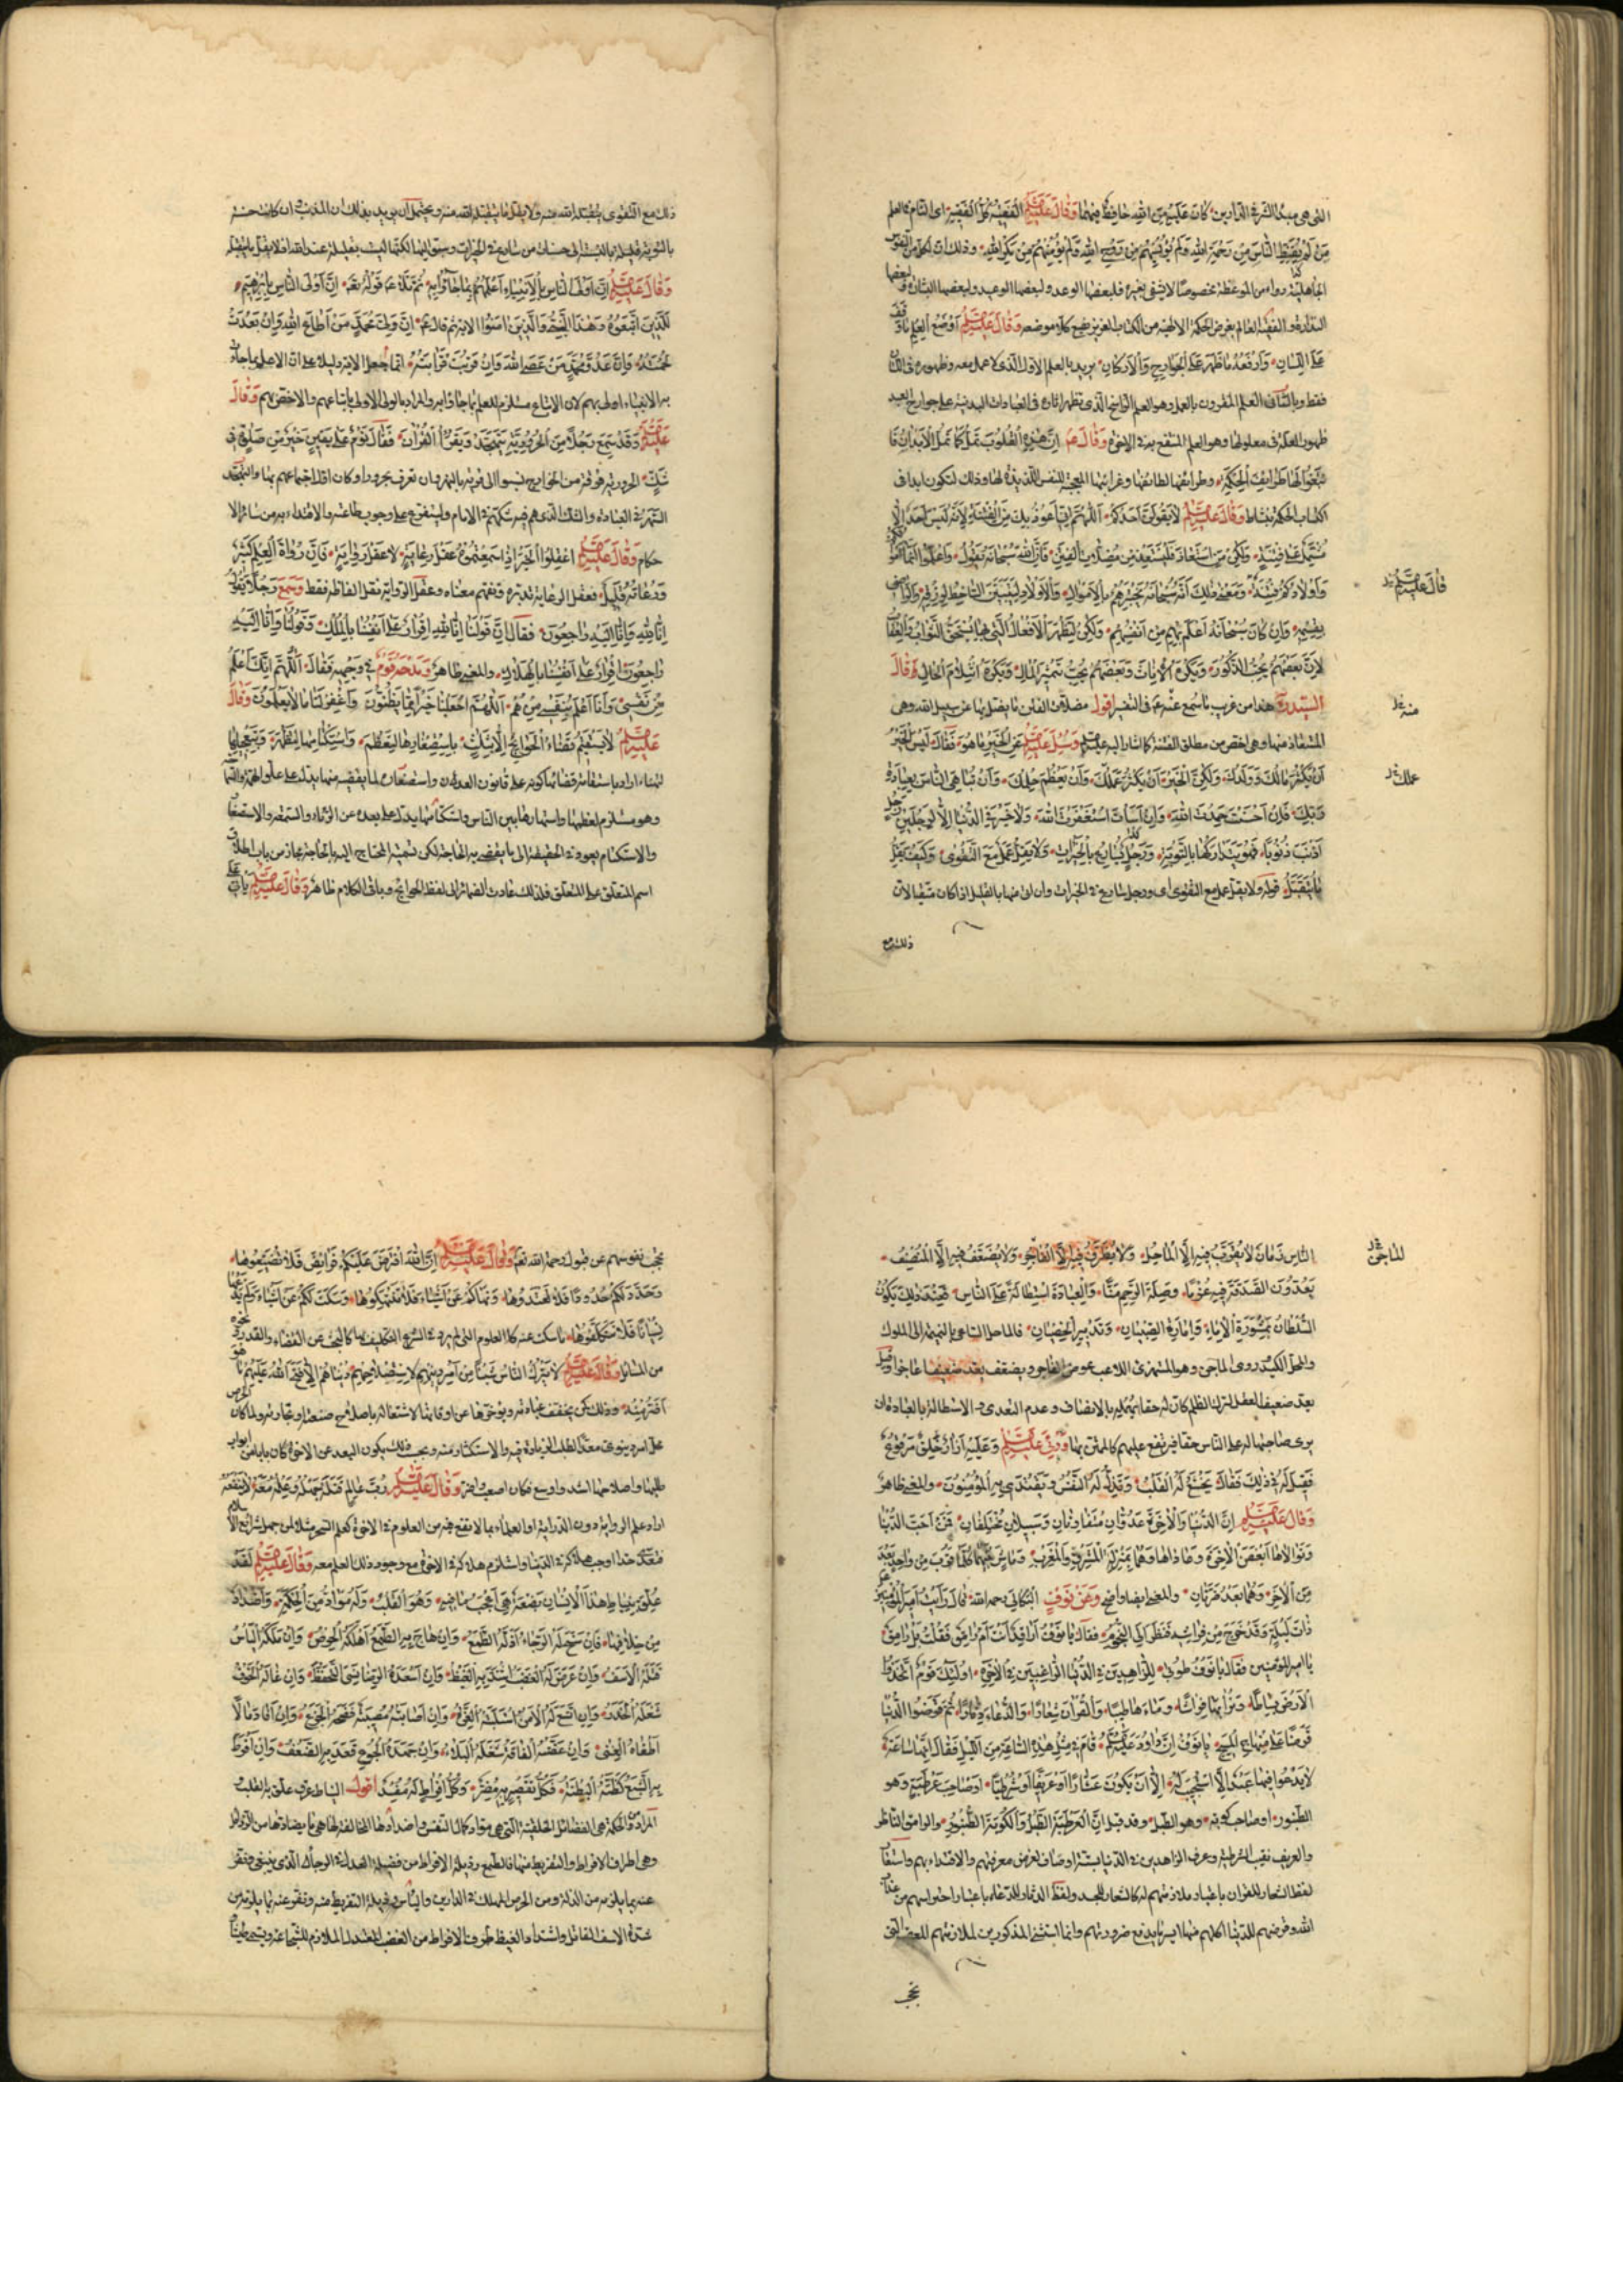 التى هى مبدأ الشر فى الدارين كان عليه من الله حافظ فيهما وقال عليه السلام الفقيه كل الفقيه اى التام فى العلم
من لم يقنط الناس من رحمة الله ولم يؤيسهم من روح الله ولم يؤمنهم من مكر الله وذلك ان لكل من النفوس
الجاهلية دواء من الموعظة مخصوصا لا يشفى بغيره فلبعضها الوعد ولبعضها الوعيد ولبعضها البشارة ولبعضها
النذارة والفقيه العالم بغرض الحكمة الالهية من الكتاب العزيز يضع كلا موضعه وقال عليه السلام اوضع العلم ما وقف
على اللسان وارفعه ما ظهر على الجوارح والاركان يريد بالعلم الاول الذى لا عمل معه وظهوره فى اللسان
فقط وبالثانى العلم المقرون بالعمل وهو العلم الذى تظهر اثاره فى العبادات البدنية على جوارح العبد
ظهور العلة فى معلولها وهو العلم المنتفع به فى الاخرة وقال ع ان هذه القلوب تمل كما تمل الابدان فا
بتغوا لها طرايف الحكمة وطرائفها لطائفها وغرائبها المعجبة للنفس اللذيذة لها وذلك لتكون ابدا فى
اكتساب الحكمة بنشاط وقال عليه السلام لا يقولن احدكم اللهم انى اعوذ بك من الفتنة لانه ليس احد الا و
هو مشتمل على فتنة ولكن من استعاذ فليستعذ من مضلات الفتن فان الله سبحانه يقول واعلموا انما اموالكم
واولادكم فتنة ومعنى ذلك انه سبحانه يختبرهم بالاموال والاولاد ليتبين الساخط لرزقه والراضى
بقسمه وان كان سبحانه اعلم بهم من انفسهم ولكن لتظهر الافعال التى بها يستحق الثواب والعقاب
لان بعضهم يحب الذكور ويكره الاناث وبعضهم يحب تثمير المال ويكره انثلام الحال قال
السيد هذا من غريب ما سمع عنه ع فى التفسير اقول مضلات الفتن ما يضل بها عن سبيل الله وهى
المستعاذ منها وهى اخص من مطلق الفتنة كما اشار اليه عليه السلام وسئل عليه السلام عن الخير ما هو فقال ليس الخير
ان يكثر مالك وولدك ولكن الخير ان يكثر عملك وان يعظم حلمك وان تباهى الناس بعبادة
ربك فان احسنت حمدت الله وان اسأت استغفرت الله ولا خير فى الدنيا الا لرجلين رجل
اذنب ذنوبا فهو يتداركها بالتوبة ورجل يسارع بالخيرات ولا يقل عمل مع التقوى وكيف يقل
ما يتقبل قوله ولا يقل عمل مع التقوى اى ورجل يسارع فى الخيرات وان اتى منها بالقليل اذا كان متقيا لان
ذلك مع
قال عليه السلام
منه
عملك
ذلك مع التقوى يتقبله الله منه ولا يقل ما يتقبله الله منه ويحتمل ان يريد بذلك ان المذنب ان كانت حسنته
بالتوبة قليلة بالنسبة الى حسنات من سارع فى الخيرات وسبق اليها لكنها ليست بقليلة عند الله اذ لا يقل ما يتقبله
وقال عليه السلام ان اولى الناس بالانبياء اعلمهم بما جاؤا به ثم تلا ع قوله تعه ان اولى الناس بابراهيم
للذين اتبعوه وهذا النبى والذين امنوا الاية ثم قال ع ان ولى محمد من اطاع الله وان بعدت
لحمته وان عدو محمد من عصى الله وان قربت قرابته انما جعل الاية دليلا على ان الاعلم بما جاءت
به الانبياء اولى بهم لان الاتباع مستلزم للعلم بما جاؤا به والمراد بالولى الاولى باتباعهم والاخص بهم وقال
عليه السلام وقد سمع رجلا من الحرورية يتهجد ويقرأ القرآن فقال نوم على يقين خير من صلوة فى
شك الحرورية فرقة من الخوارج نسبوا الى قرية بالنهروان تعرف بحرورا وكان اول اجتماعهم بها والتهجد
السهر فى العبادة والشك الذى هم فيه شكهم فى الامام ويتفرع على وجوب طاعته والاقتداء به من سائر الا
حكام وقال عليه السلام اعقلوا الخبر اذا سمعتموه عقل رعاية لا عقل رواية فان رواة العلم كثير
ورعاته قليل فعقل الرعاية تدبره وتفهم معناه وعقل الرواية نقل الفاظه فقط وسمع رجلا يقول
انا لله وانا اليه راجعون فقال ان قولنا انا لله اقرار على انفسنا بالملك وقولنا وانا اليه
راجعون اقرار على انفسنا بالهلاك والمعنى ظاهر ومدحه قوم فى وجهه فقال اللهم انك اعلم بى
من نفسى وانا اعلم بنفسى منهم اللهم اجعلنا خيرا مما يظنون واغفر لنا ما لا يعلمون وقال
عليه السلام لا يستقيم قضاء الحوائج الا بثلث باستصغارها لتعظم واستكتامها لتظهر وبتعجيلها
لتهنأ اراد باستقامة قضائها كونه على قانون العدل واستصغار لما يقضيه منها يدل على علو الهمة والسماحة
وهو مستلزم لعظمها واشتهارها بين الناس واستكتامها يدل على بعده عن الرياء والسمعة والاستصغار
والاستكتام يعود فى الحقيقة الى ما يقضى به الحاجة لكن تسمية المحتاج اليه بالحاجة مجاز من باب اطلاق
اسم المتعلق على المتعلق فلذلك عادت الضمائر الى لفظ الحوائج وباقى الكلام ظاهر وقال عليه السلام يأتى على
الناس زمان لا يقرب فيه الا الماحل ولا يظرف فيه الا الفاجر ولا يضعف فيه الا المنصف
يعدون الصدقة فيه غرما وصلة الرحم منا والعبادة استطالة على الناس فعند ذلك يكون
السلطان بمشورة الاماء وامارة الصبيان وتدبير الخصيان فالماحل الساعى بالنميمة الى الملوك
والمحل الكيد وروى الماجن وهو المستهزئ اللاعب وهو الفاجر ويضعف يعد ضعيفا عاجزا وقيل
يعد ضعيف العقل لترك الظلم كان له حقا بالانصاف وعدم التعدى والاستطالة بالعبادة ان
يرى صاحبها له على الناس حقا فيرتفع عليهم كالممتن بها ورئى عليه السلام وعليه ازار خلق مرقوع
فقيل له فى ذلك فقال يخشع له القلب وتذل له النفس ويقتدى به المؤمنون والمعنى ظاهر
وقال عليه السلام ان الدنيا والاخرة عدوان متفاوتان وسبيلان مختلفان فمن احب الدنيا
وتوالاها ابغض الاخرة وعاداها وهما بمنزلة المشرق والمغرب وماش بينهما كلما قرب من واحد بعد
من الاخر وهما بعد ضرتان والمعنى ايضا واضح وعن نوف البكالى رحمه الله قال رأيت امير المؤمنين ع
ذات ليلة وقد خرج من فراشه فنظر الى النجوم فقال يا نوف اراقد انت ام رامق فقلت بل رامق
يا امير المؤمنين فقال يا نوف طوبى للزاهدين فى الدنيا الراغبين فى الاخرة اولئك قوم اتخذوا
الارض بساطا وترابها فراشا وماءها طيبا والقرآن شعارا والدعاء دثارا ثم قرضوا الدنيا
قرضا على منهاج المسيح يا نوف ان داود عليه السلام قام فى مثل هذه الساعة من الليل فقال انها ساعة
لا يدعو فيها عبد الا استجيب له الا ان يكون عشارا او عريفا او شرطيا او صاحب عرطبة وهو
الطنبور او صاحب كوبة وهو الطبل وقد قيل ان العرطبة الطبل والكوبة الطنبور والرامق الناظر
والعريف نقيب الشرطة وعرف الزاهدين فى الدنيا بستة اوصاف لغرض معرفتهم والاقتداء بهم واستعار
لفظ الشعار للقرآن باعتبار ملازمتهم له كالشعار للجسد ولفظ الدثار للدعاء باعتبار احتراسهم من عذاب
الله وقرضهم للدنيا اكلهم منها ايسر ما يدفع ضرورتهم وانما استثنى المذكورين لملازمتهم للمعصية التى
الماجن
تحجب
تحجب نفوسهم عن قبول رحمة الله تعه وقال عليه السلام ان الله افترض عليكم فرايض فلا تضيعوها
وحدد لكم حدودا فلا تعتدوها ونهاكم عن اشياء فلا تنتهكوها وسكت لكم عن اشياء ولم يدعها
نسيانا فلا تتكلفوها ما سكت عنه كالعلوم التى لم يرد فى الشرع التكليف بها كالبحث عن القضاء والقدر ونحوه
من المسائل وقال عليه السلام لا يترك الناس شيئا من امر دينهم لاستصلاح دنياهم الا فتح الله عليهم ما هو
اضر منه وذلك كمن يخفف عبادته ويؤخرها عن اوقاتها لاشتغاله باصلاح صنعة او تجارة ولما كان الحرص
على امر دنيوى معدا لطلب الزيادة فيه والاستكثار منه وبحسب ذلك يكون البعد عن الاخرة كان بابا من ابواب
طلبها واصلاحها اشد واوسع فكان اصعب واضر وقال عليه السلام رب عالم قد قتله جهله وعلمه معه لا ينفعه
اراد علم الرواية دون الدراية او العلماء بما لا نفع فيه من العلوم فى الاخرة كعلم السحر مثلا من جهل شرائع الاسلام
فتعدى حدا اوجب هلاكه فى الدنيا واستلزم هلاكه فى الاخرة مع وجود ذلك العلم معه وقال عليه السلام لقد
علق بنياط هذا الانسان بضعة هى اعجب ما فيه وهو القلب وله مواد من الحكمة واضداد
من خلافها فان سنح له الرجاء اذله الطمع وان هاج به الطمع اهلكه الحرص وان ملكه اليأس
قتله الاسف وان عرض له الغضب اشتد به الغيظ وان اسعده الرضا نسى التحفظ وان غاله الخوف
شغله الحذر وان اتسع له الامن استلبته الغرة وان اصابته مصيبة فضحه الجزع وان افاد مالا
اطغاه الغنى وان عضته الفاقة شغله البلاء وان جهده الجوع قعد به الضعف وان افرط
به الشبع كظته البطنة فكل تقصير به مضر وكل افراط له مفسد اقول النياط عرق علق به القلب
المراد من الحكمة هى الفضائل الخلقية التى هى مواد كمال النفس واضدادها المخالفة لها هى ما يضادها من الرذائل
وهى اطراف الافراط والتفريط منها فالطمع رذيلة الافراط من فضيلة العدل فى الرجاء الذى ينبغى ونفر
عنه بما يلزمه من الذلة ومن الحرص المهلك فى الدارين واليأس رذيلة التفريط منه ونفر عنه بما يلزمه من
شدة الاسف القاتل واشتداد الغيظ طرف الافراط من الغضب المعتدل الملازم للشجاعة ويسمى طيشا